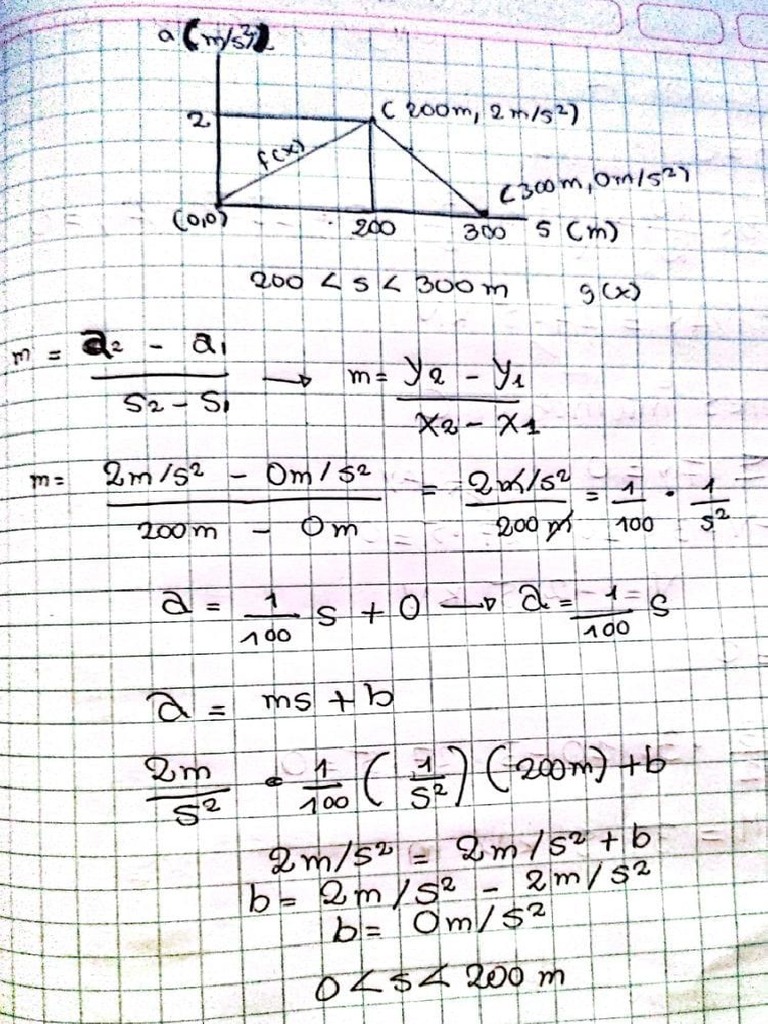 a (m/s²)
2
(200m, 2m/s²)
f(x)
(300m, 0m/s²)
(0,0)
200
300
S (m)
200 < s < 300m
g(x)
m = a₂ - a₁ / s₂ - s₁ → m = y₂ - y₁ / x₂ - x₁
m = 2m/s² - 0m/s² / 200m - 0m = 2m/s² / 200m = 1/100 · 1/s²
a = 1/100 s + 0 → a = 1/100 s
a = ms + b
2m/s² = 1/100 (1/s²) (200m) + b
2m/s² = 2m/s² + b
b = 2m/s² - 2m/s²
b = 0m/s²
0 < s < 200m